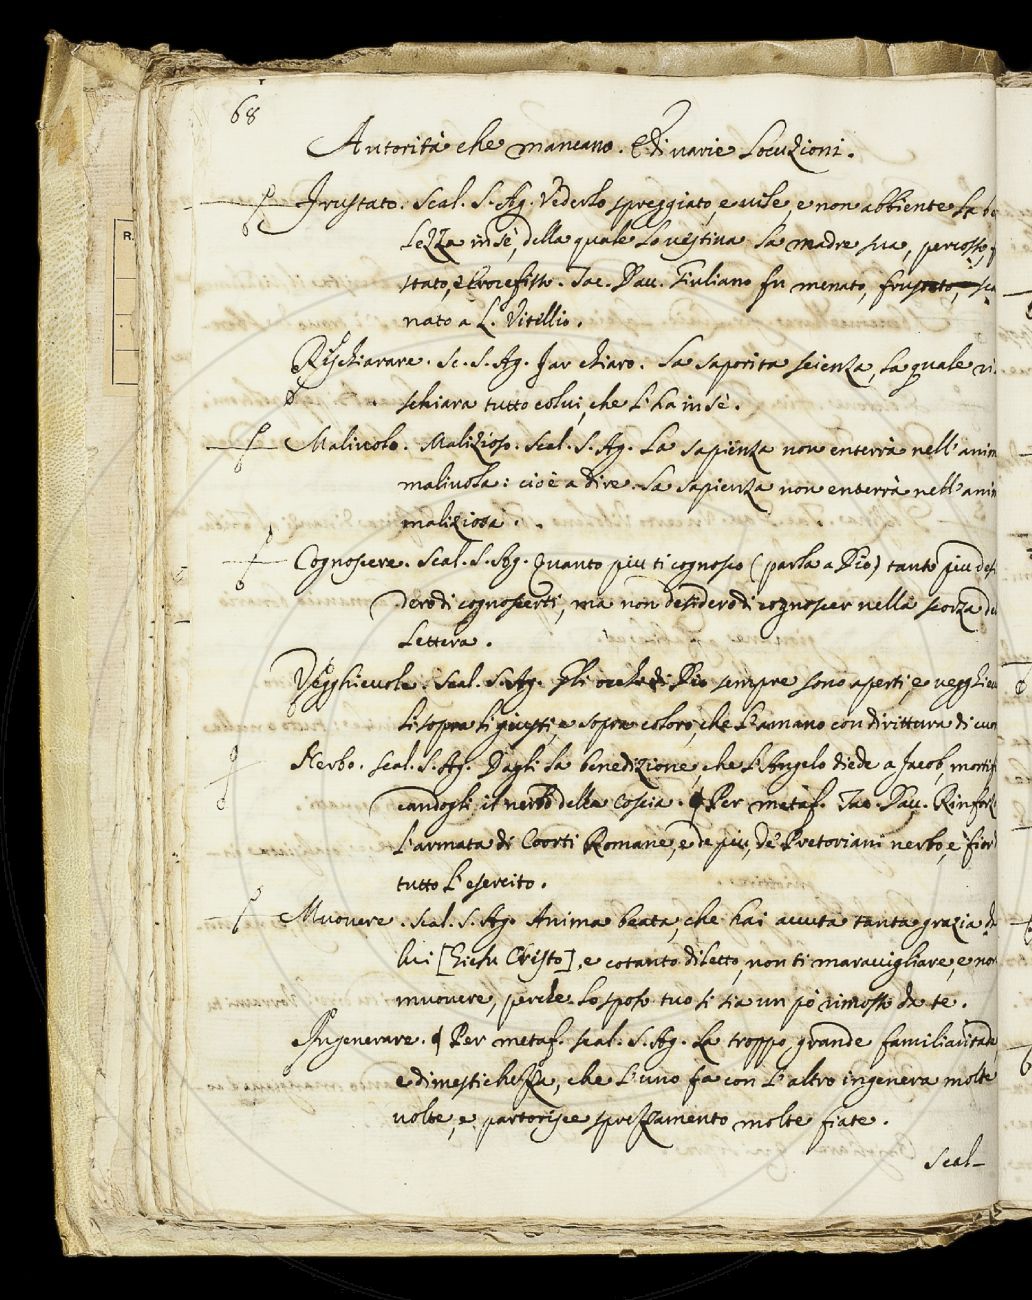 68
Autorità che mancano. E di varie Locuzioni.
Frustato. Scal. S. Ag. Vederlo spreggiato, e vile, e non abbiente la be
lezza in sè, della quale lo vestiva la madre sua, percosso, f
stato, e Crocefisso. Tac. Dav. Giuliano fu menato, frustato, sca
nato a L. Vitellio.
Rischiarare. Sc. S. Ag. Far chiaro. La saporita scienza, la quale ri
schiara tutto colui, che l'ha in sè.
Malivolo. Malizioso. Scal. S. Ag. La sapienza non enterrà nell'anim
malivola: cioè a dire. La sapienza non enterrà nell'anim
maliziosa.
Cognoscere. Scal. S. Ag. Quanto piu ti cognosco (parla a Dio) tanto piu desi
dero di cognoscerti, ma non desidero di cognoscer nella scorza de
Lettera.
Vegghievole. Scal. S. Ag. Gli occhi di Dio sempre sono aperti, e vegghievo
li sopra li giusti, e sopra coloro, che l'amano con dirittura di cuor
Nerbo. Scal. S. Ag. Dagli la benedizione, che l'Angelo diede a Jacob, mortifi
candogli il nerbo della Coscia. Per metaf. Tac. Dav. Rinforz
l'armata di Coorti Romane, e de piu, de' Pretoriani nerbo, e fior d
tutto l'esercito.
Muovere. Scal. S. Ag. Anima beata, che hai avuta tanta grazia da
lui [Giesu Cristo], e cotanto diletto, non ti maravigliare, e non
muovere, perche lo sposo tuo si sia un pò rimosso da te.
Ingenerare. Per metaf. Scal. S. Ag. La troppo grande familiaritade
e dimestichezza, che l'uno fa con l'altro ingenera molte
volte, e partorisce sprezzamento molte fiate.
Scal-
R.